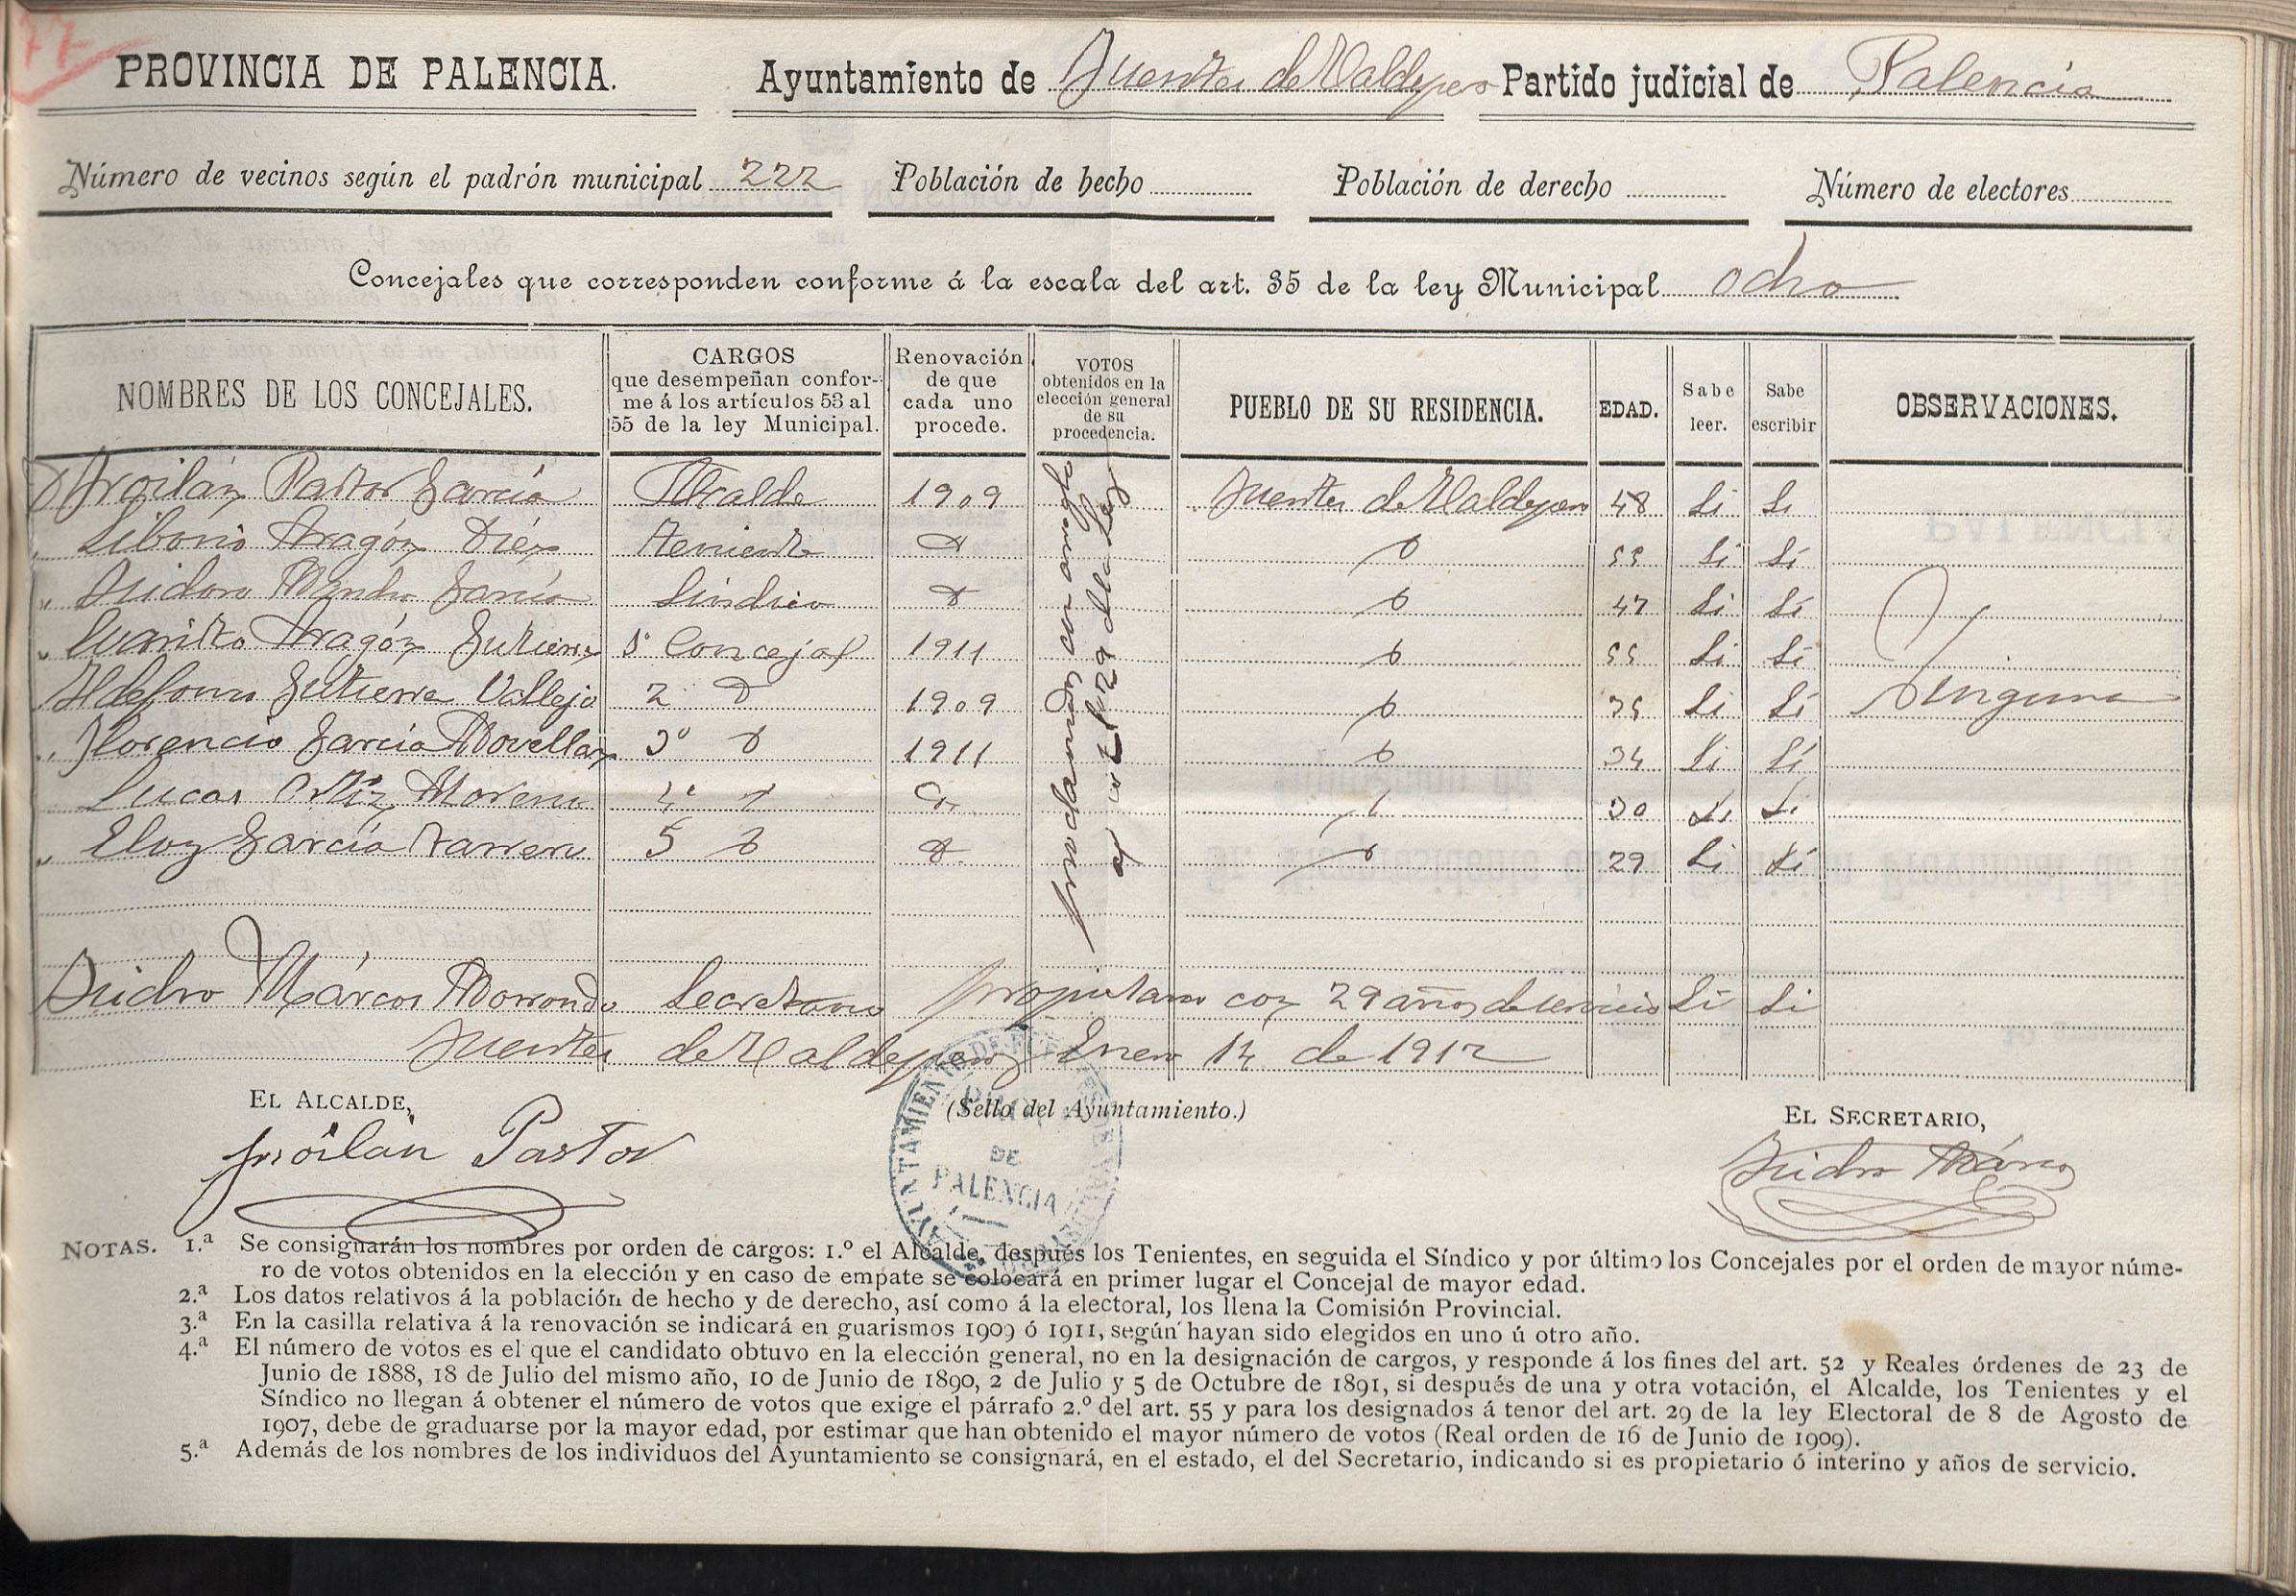 77
PROVINCIA DE PALENCIA. Ayuntamiento de Fuentes de Valdepero Partido judicial de Palencia
Número de vecinos según el padrón municipal 222 Población de hecho Población de derecho Número de electores
Concejales que corresponden conforme á la escala del art. 35 de la ley Municipal ocho
NOMBRES DE LOS CONCEJALES. CARGOS que desempeñan confor-me á los artículos 53 al 55 de la ley Municipal. Renovación de que cada uno procede. VOTOS obtenidos en la elección general de su procedencia. PUEBLO DE SU RESIDENCIA. EDAD. Sabe leer. Sabe escribir OBSERVACIONES.
D Froilán Pastor García Alcalde 1909 Fuentes de Valdepero 48 Si Si
" Liborio Aragón Diéz Teniente 55 Si Si
" Isidoro García Sindico 47 Si Si
" Aragón Gutierrez 1º Concejal 1911 55 Si Si
" Ildefonso Gutierrez Vallejo 2 1909 35 Si Si Ninguna
" Florencio García Movellan 3º 1911 34 Si Si
" Lucas Ortiz Moreno 4º 30 Si Si
" Eloy García 5 29 Si Si
proclamados con arreglo
al artº 29 de la Ley
Isidro Márcos Morrondo Secretario propietario con 29 años de servicio Si Si
Fuentes de Valdepero Enero 14 de 1912
EL ALCALDE, (Sello del Ayuntamiento.) EL SECRETARIO,
Froilán Pastor Isidro Márcos
AYUNTAMIENTO DE FUENTES DE VALDEPERO
DE
PALENCIA
NOTAS. 1.ª Se consignarán los nombres por orden de cargos: 1.º el Alcalde, después los Tenientes, en seguida el Síndico y por último los Concejales por el orden de mayor núme-
ro de votos obtenidos en la elección y en caso de empate se colocará en primer lugar el Concejal de mayor edad.
2.ª Los datos relativos á la población de hecho y de derecho, así como á la electoral, los llena la Comisión Provincial.
3.ª En la casilla relativa á la renovación se indicará en guarismos 1909 ó 1911, según hayan sido elegidos en uno ú otro año.
4.ª El número de votos es el que el candidato obtuvo en la elección general, no en la designación de cargos, y responde á los fines del art. 52 y Reales órdenes de 23 de
Junio de 1888, 18 de Julio del mismo año, 10 de Junio de 1890, 2 de Julio y 5 de Octubre de 1891, si después de una y otra votación, el Alcalde, los Tenientes y el
Síndico no llegan á obtener el número de votos que exige el párrafo 2.º del art. 55 y para los designados á tenor del art. 29 de la ley Electoral de 8 de Agosto de
1907, debe de graduarse por la mayor edad, por estimar que han obtenido el mayor número de votos (Real orden de 16 de Junio de 1909).
5.ª Además de los nombres de los individuos del Ayuntamiento se consignará, en el estado, el del Secretario, indicando si es propietario ó interino y años de servicio.